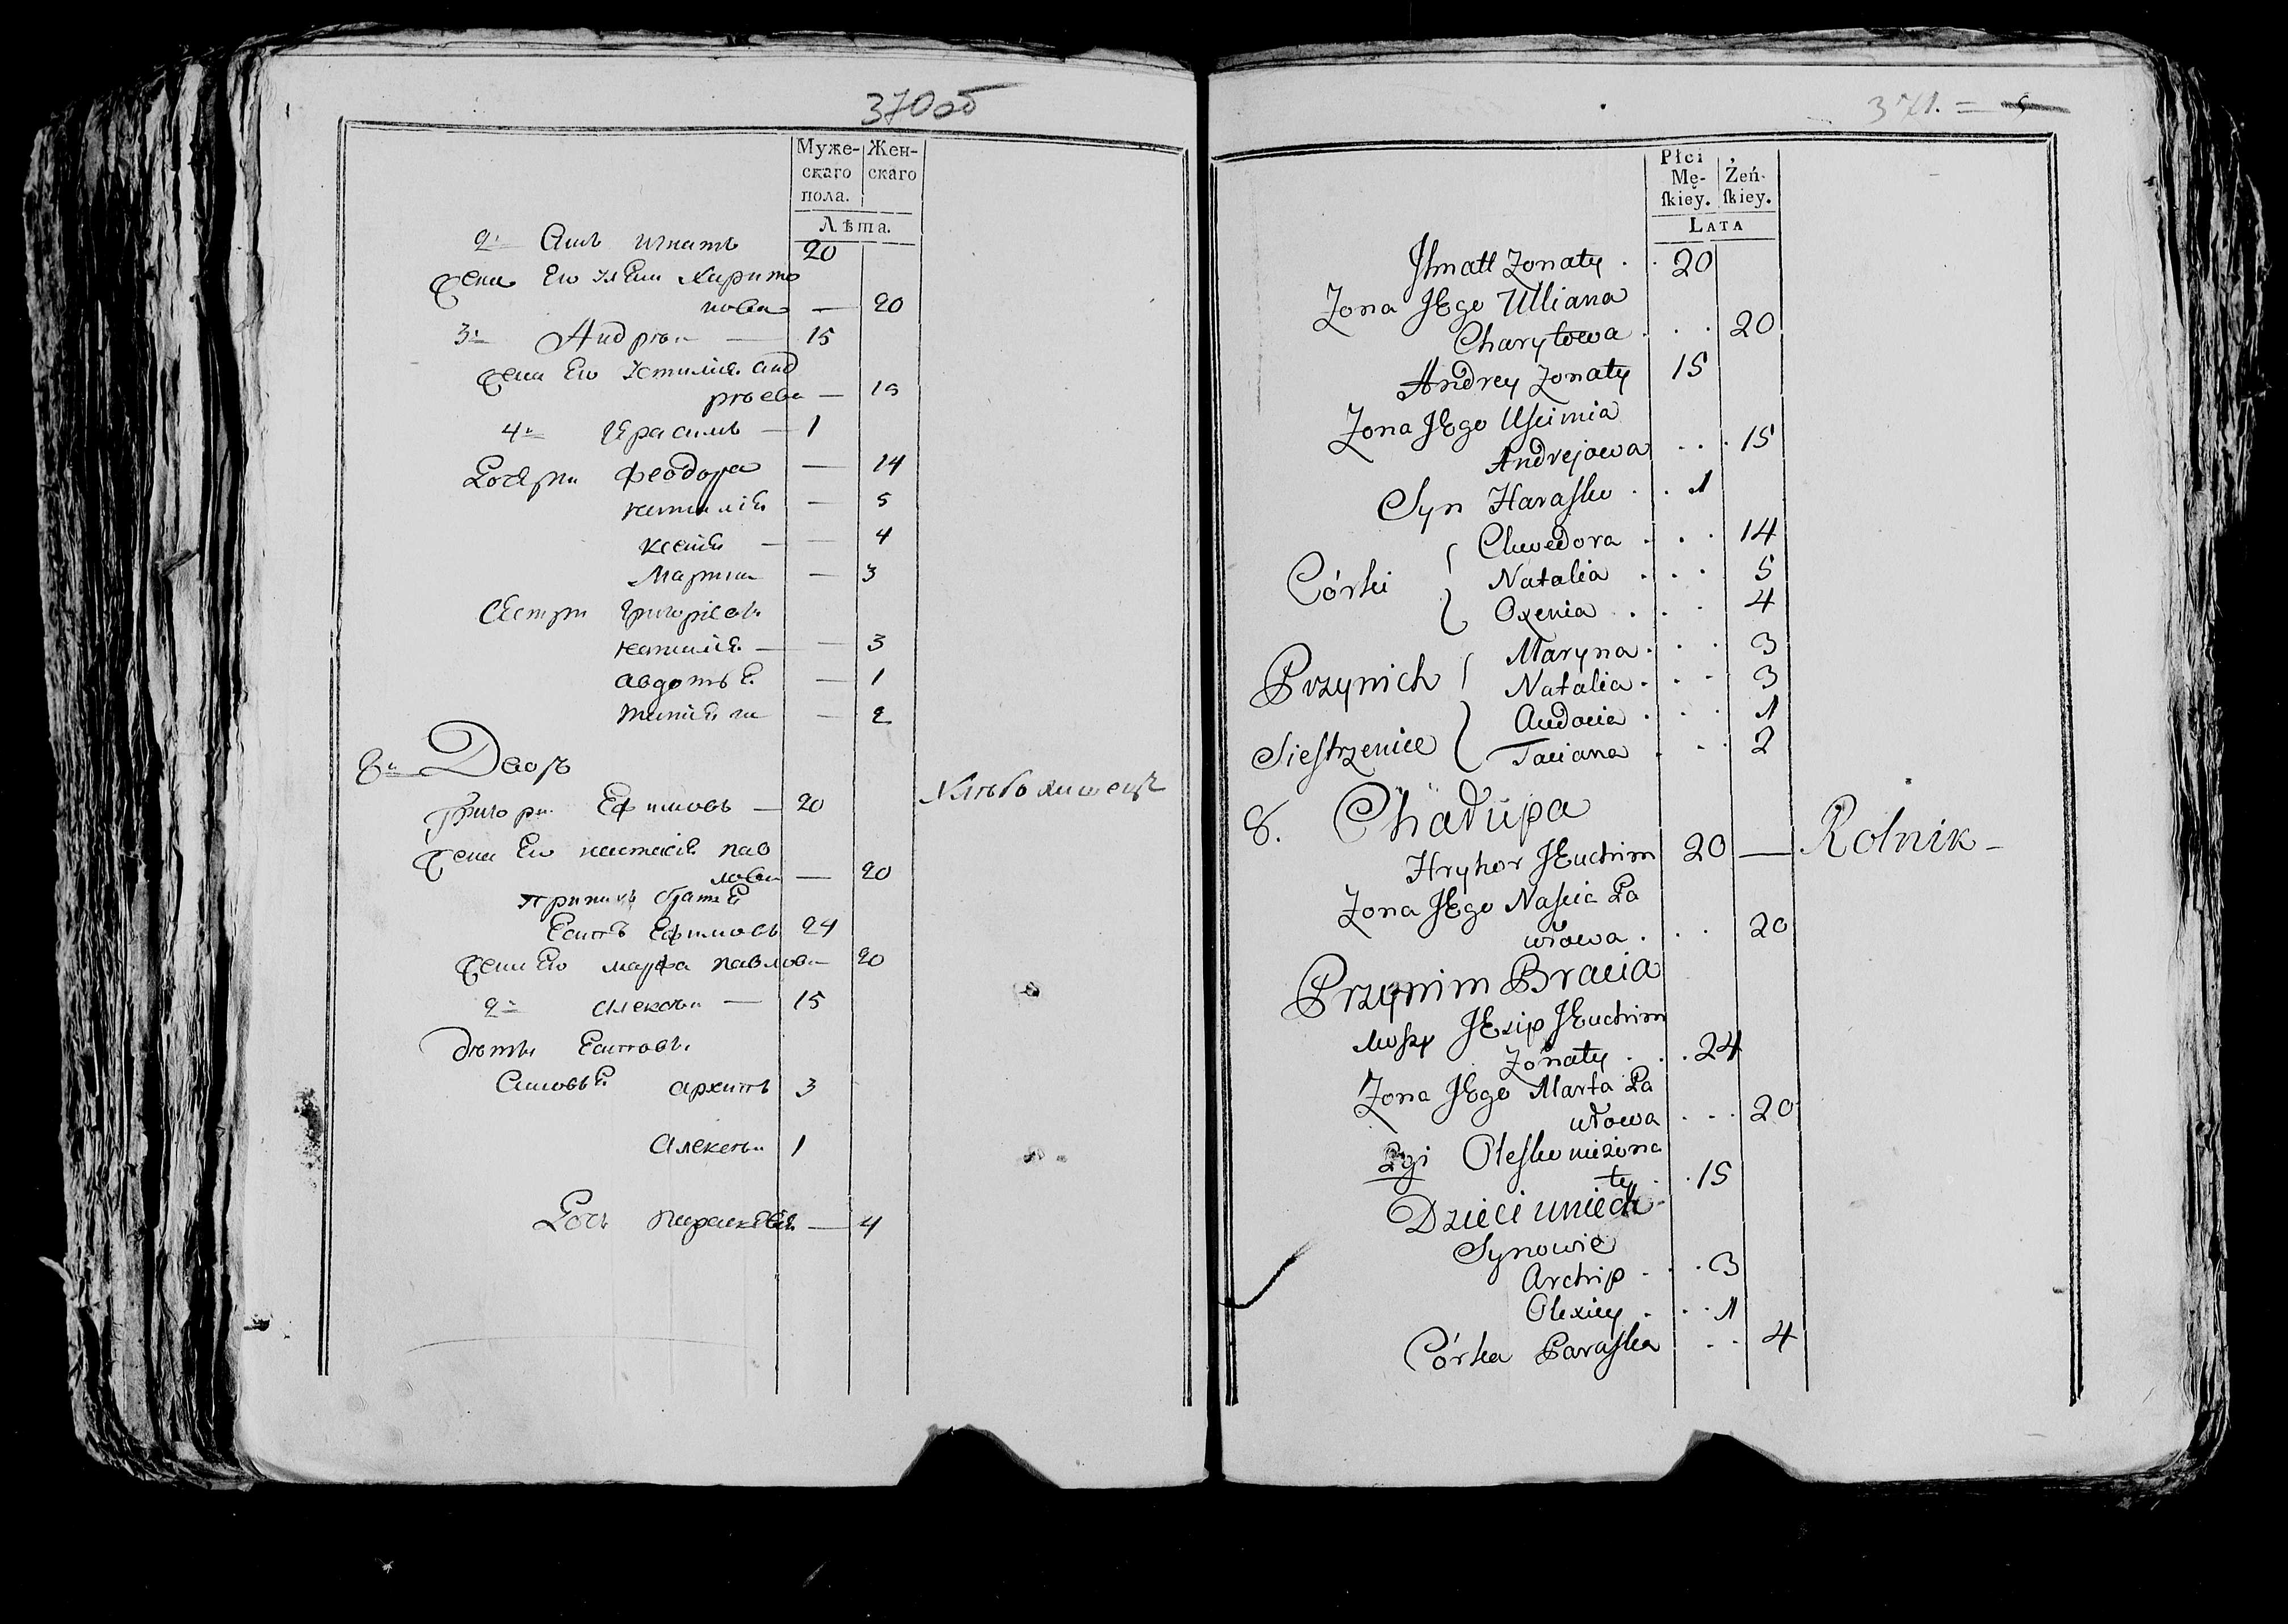 370об
Муже-
скаго
пола.
Жен-
скаго
Лѣта.
2й Сынъ Игнатъ 20
Жена Его Улѣяна Харито
нова — 20
3й Андрѣй — 15
Жена Его Устимія Анд
рѣева — 15
4й Герасимъ — 1
Дочери Феодора — 14
Наталія — 5
Ксенія — 4
Марина — 3
Сестри Григоріевы
Наталія — 3
Авдотья — 1
Татіана — 2
8й Дворъ
Григори Ефимовъ — 20 Хлѣбопашецъ
Жена Его Настасія Пав
лова — 20
При нихъ братья
Есипъ Ефимовъ 24
Жена Его Марфа Павлова 20
2й Алексѣй — 15
Дѣти Есиповы
Сыновья Архипъ 3
Алексѣй 1
Дочь Параскевія — 4
371. = 5
Płci
Mę-
ſkiey.
Żeń-
ſkiey.
LATA
Jhnatt Zonaty . . 20
Zona JEgo Ulliana
Charytowa . . . 20
Andrey Zonaty 15
Zona JEgo Uſcimia
Andrejowa . . . 15
Syn Haraſko . . 1
Córki Chwedora . . . 14
Natalia . . . 5
Oxenia . . . 4
Maryna . . . 3
Przynich Natalia . . . 3
Audocia . . . 1
Sieſtrzenice Taciana . . . 2
8. Chałupa
Hryhor JEuchim 20 — Rolnik —
Zona JEgo Naſcia Pa
włowa . . . 20
Przynim Bracia
JEzip JEuchim
Zonaty . . . 24
Zona JEgo Marta Pa
włowa . . . 20
2gi Oleſko niezona
ty . . 15
Dzieci unich
Synowie
Archip . . . 3
Olexiey . . . 1
Córka Paraſka . . 4